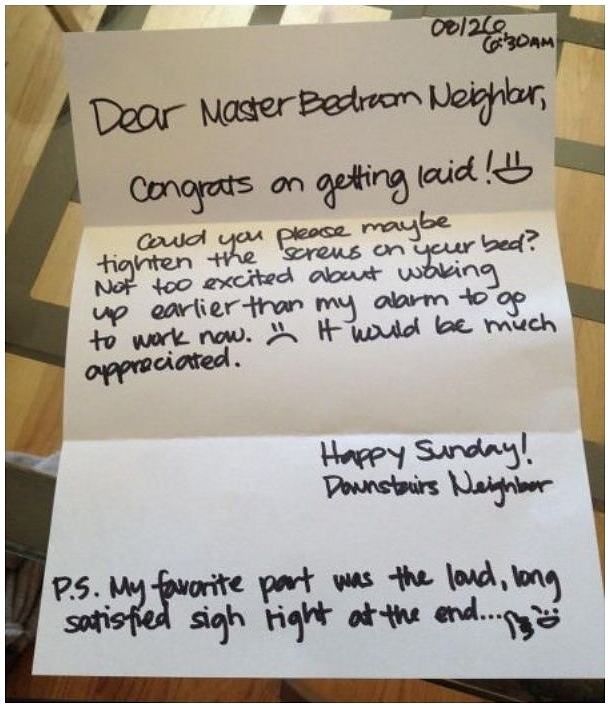 08/26
6:30AM
Dear Master Bedroom Neighbor,
Congrats on getting laid!
Could you please maybe
tighten the screws on your bed?
Not too excited about waking
up earlier than my alarm to go
to work now. It would be much
appreciated.
Happy Sunday!
Downstairs Neighbor
P.S. My favorite part was the loud, long
satisfied sigh right at the end...